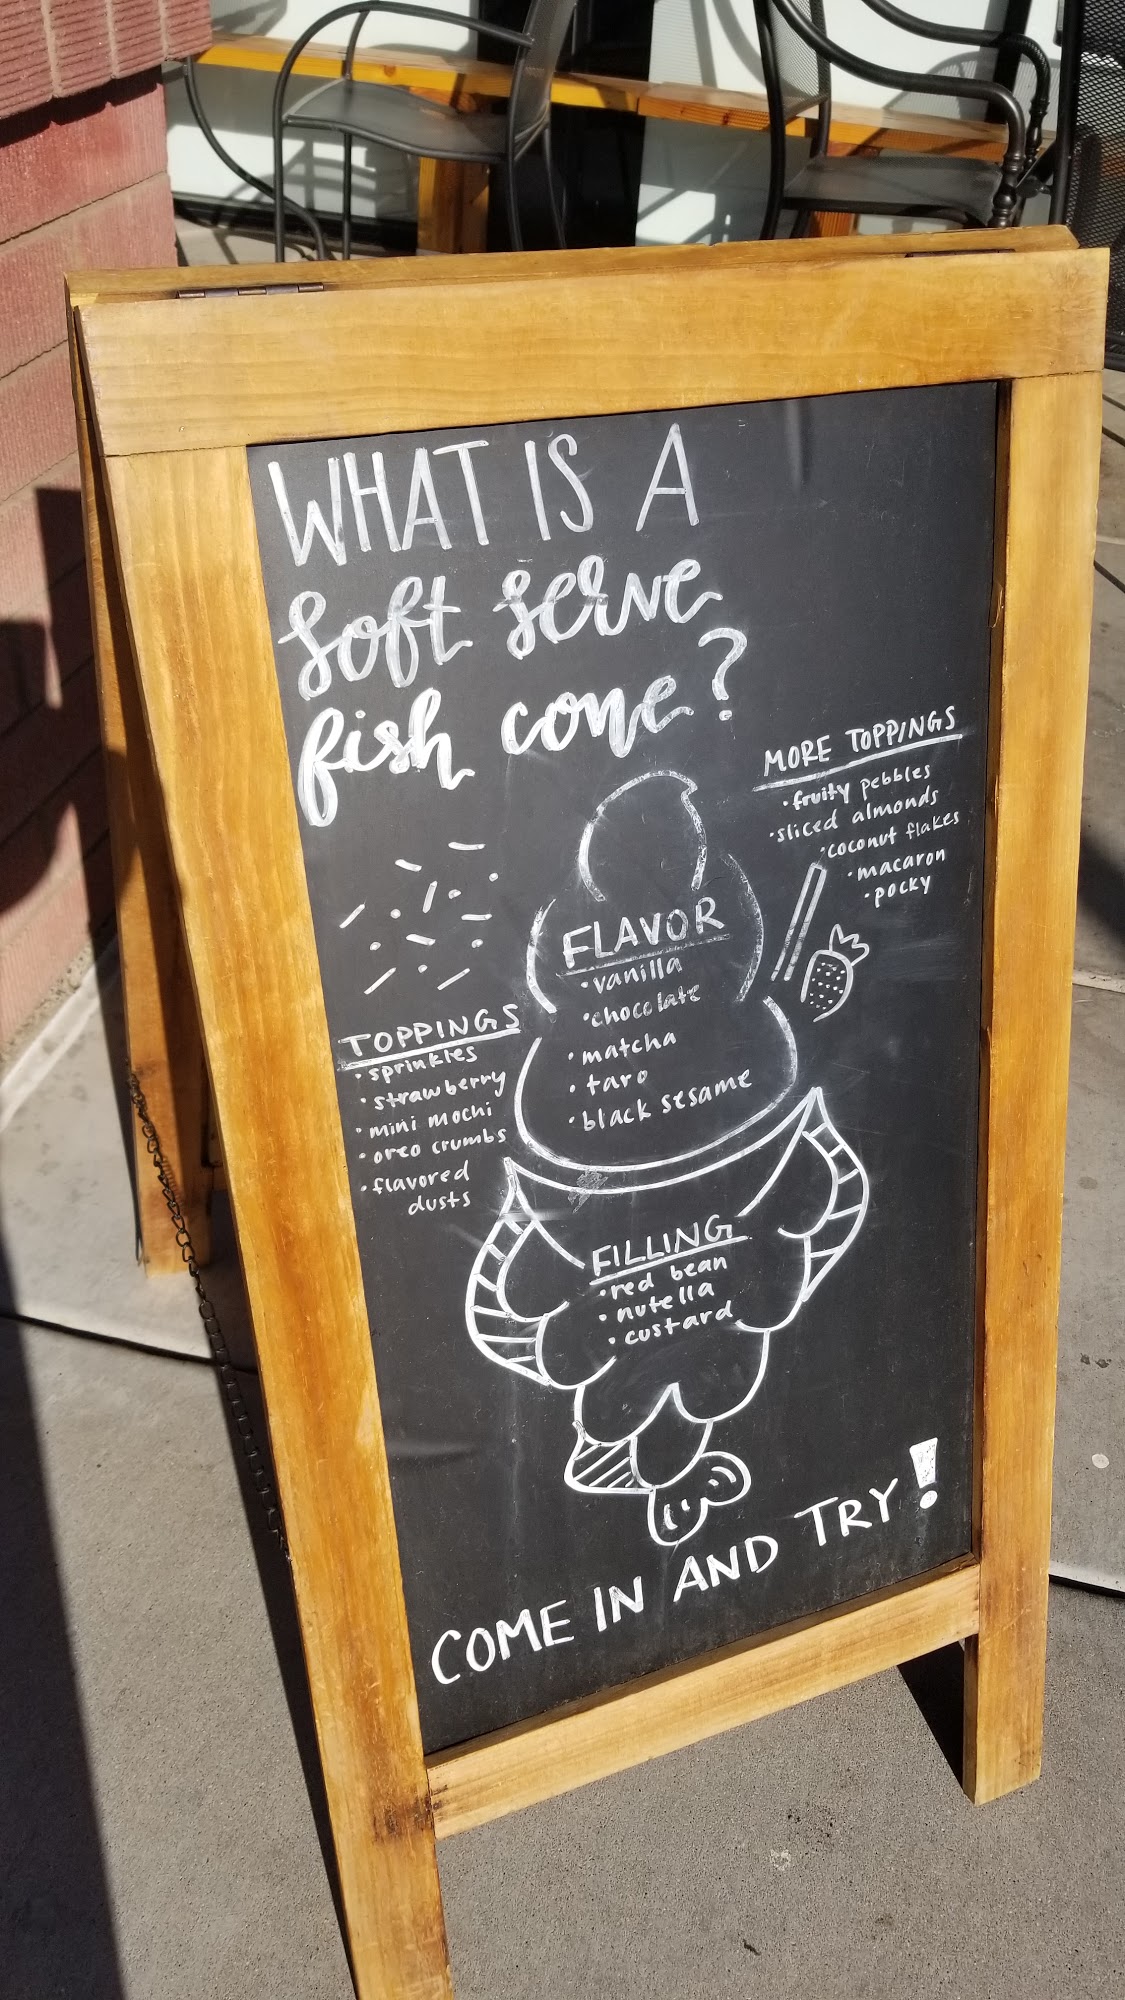 WHAT IS A
soft serve
fish cone?
MORE TOPPINGS
• fruity pebbles
• sliced almonds
• coconut flakes
• macaron
• pocky
FLAVOR
• vanilla
• chocolate
• matcha
• taro
• black sesame
TOPPINGS
• sprinkles
• strawberry
• mini mochi
• oreo crumbs
• flavored
dusts
FILLING
• red bean
• nutella
• custard
COME IN AND TRY!